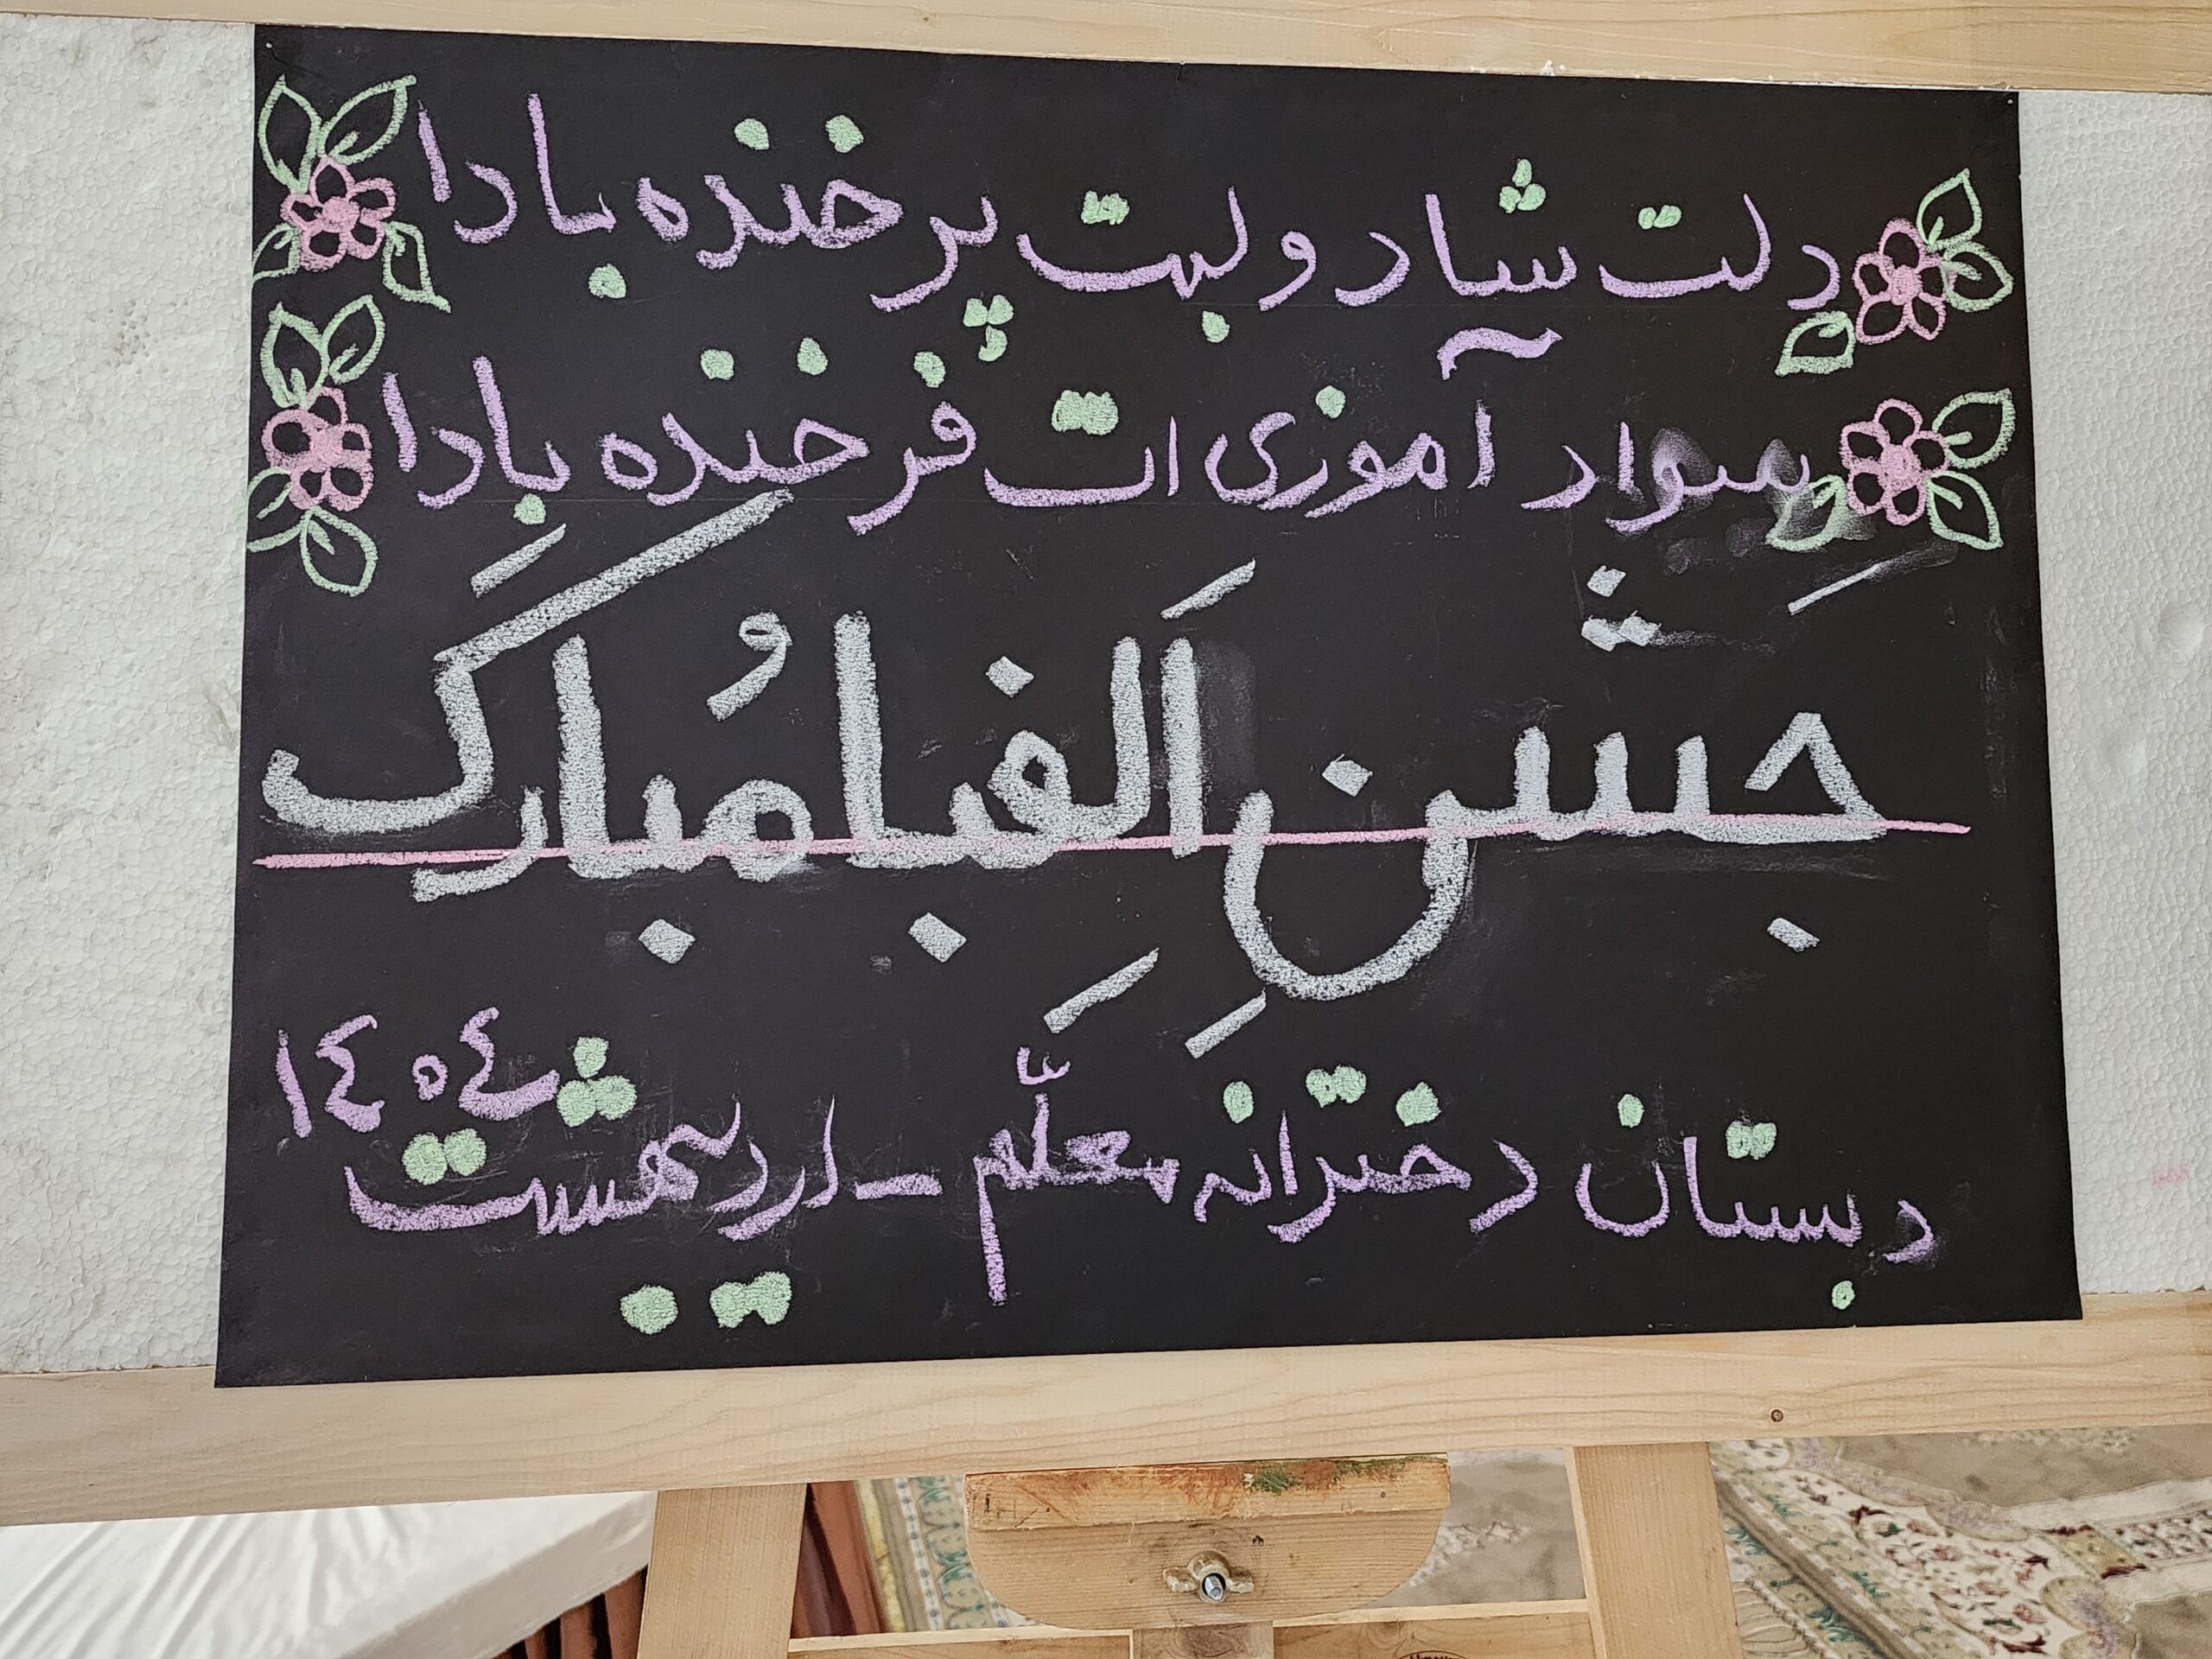 دلت شاد و لبت پر خنده بادا
سواد آموزی ات فرخنده بادا
جَشنِ اَلِفبا مُبارَک
دبستان دخترانه معلّم - اردیبهشت ۱٤۰٤